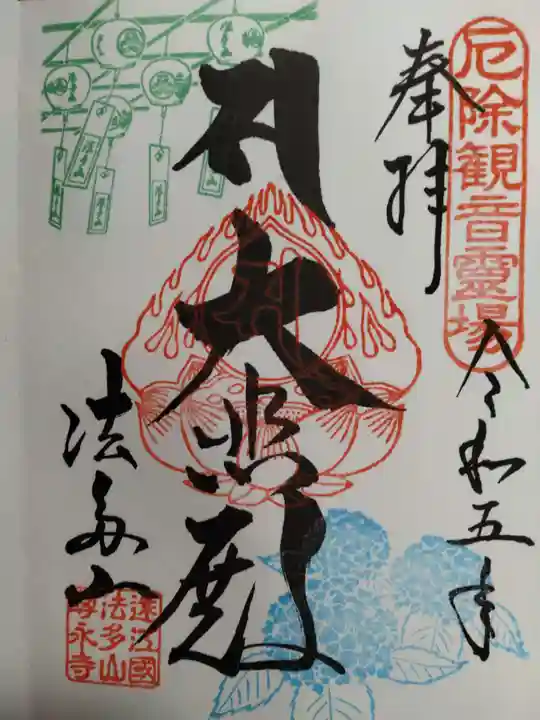 厄除観音霊場
奉拝
令和五年
大悲殿
法多山
遠江國
法多山
尊永寺